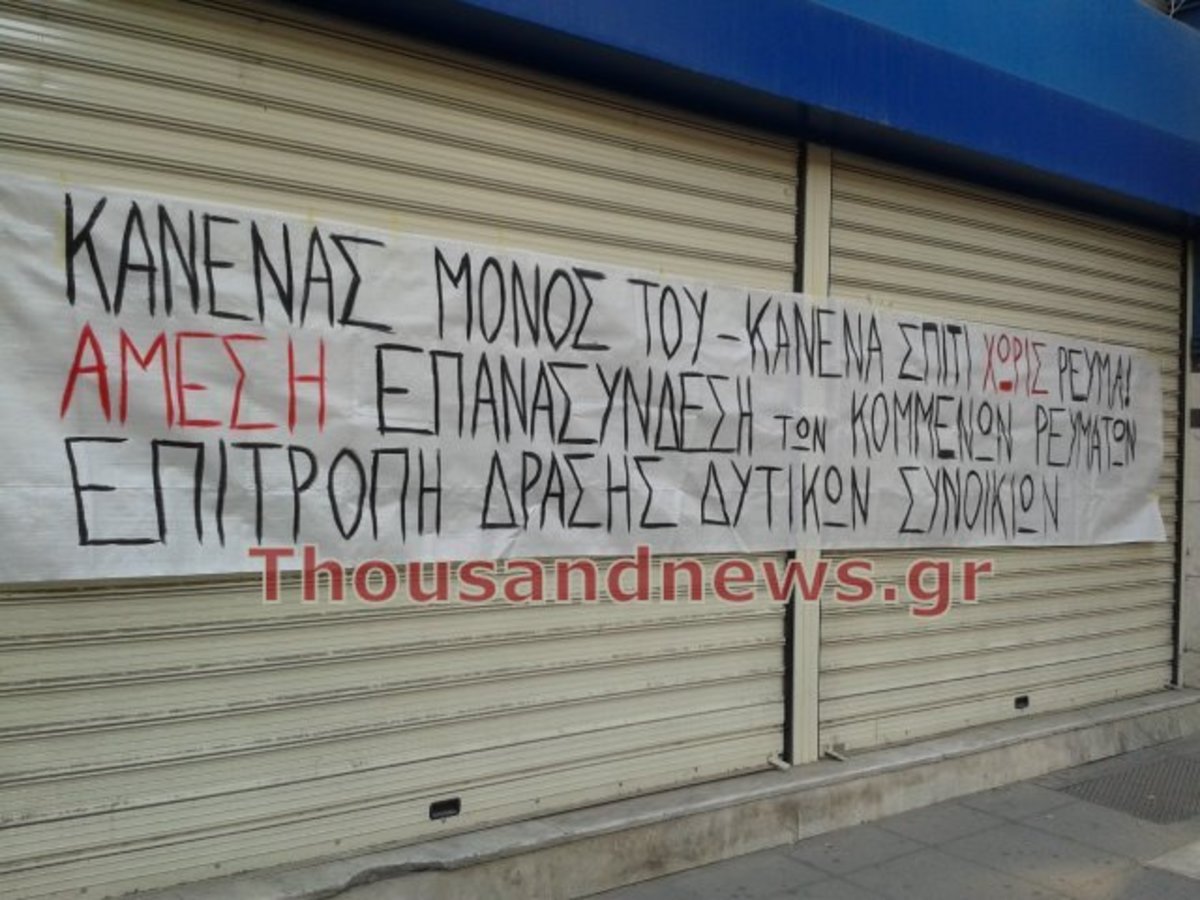 ΚΑΝΕΝΑΣ ΜΟΝΟΣ ΤΟΥ - ΚΑΝΕΝΑ ΣΠΙΤΙ ΧΩΡΙΣ ΡΕΥΜΑ!
ΑΜΕΣΗ ΕΠΑΝΑΣΥΝΔΕΣΗ ΤΩΝ ΚΟΜΜΕΝΩΝ ΡΕΥΜΑΤΩΝ
ΕΠΙΤΡΟΠΗ ΔΡΑΣΗΣ ΔΥΤΙΚΩΝ ΣΥΝΟΙΚΙΩΝ
Thousandnews.gr